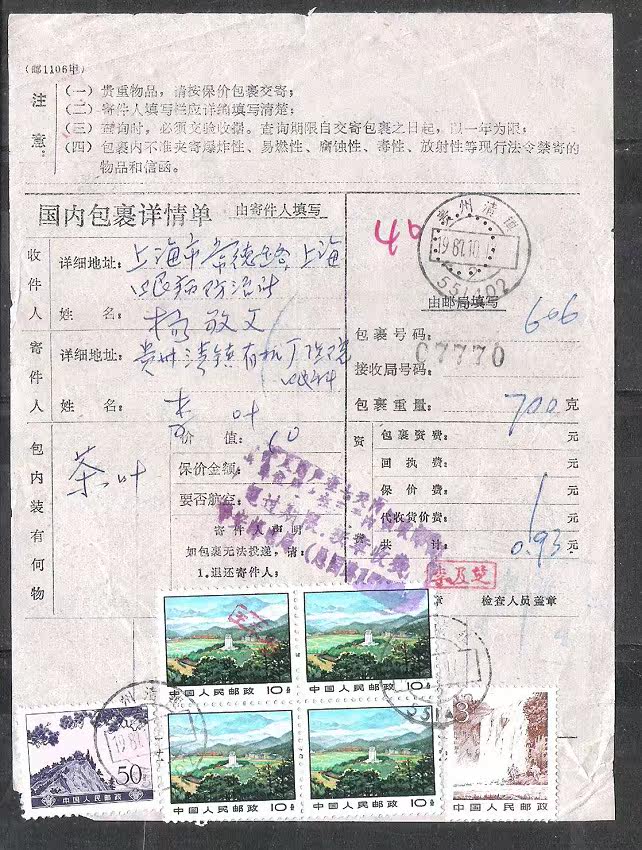 (邮1106甲)
注意：
(一) 贵重物品，请按保价包裹交寄；
(二) 寄件人填写栏应详细填写清楚；
(三) 查询时，必须交验收据。查询期限自交寄包裹之日起，以一年为限；
(四) 包裹内不准夹寄爆炸性、易燃性、腐蚀性、毒性、放射性等现行法令禁寄的
物品和信函。
国内包裹详情单 由寄件人填写
贵州清镇
1982.10.
551402
49
由邮局填写
收件人
详细地址：上海市常德路 上海
眼病防治所
姓名：杨敬文
寄件人
详细地址：贵州清镇有机厂医院
姓名：李叶
包裹号码：606
07770
接收局号码：
包裹重量：700克
包内装有何物
茶叶
价值：60
保价金额：
要否航空：
寄件人声明
如包裹无法投递，请：
1.退还寄件人；
资费
包裹资费： 元
回执费： 元
保价费： 元
代收货价费： 元
共计：0.93元
章 检查人员盖章
中国人民邮政 10分
中国人民邮政 10分
中国人民邮政 10分
中国人民邮政 10分
50
中国人民邮政
8
中国人民邮政